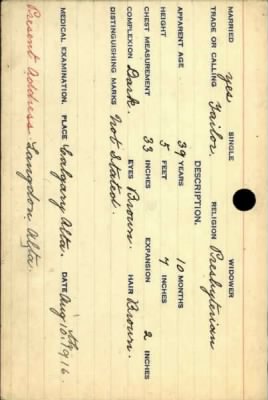 MARRIED yes SINGLE WIDOWER
TRADE OR CALLING Tailor RELIGION Presbyterian
DESCRIPTION.
APPARENT AGE 39 YEARS 10 MONTHS
HEIGHT 5 FEET 4 INCHES
CHEST MEASUREMENT 33 INCHES EXPANSION 2 INCHES
COMPLEXION Dark. EYES Brown. HAIR Brown.
DISTINGUISHING MARKS Not Stated.
MEDICAL EXAMINATION. PLACE Calgary Alta. DATE Aug 10th 1916.
Present Address. Langdon. Alta.